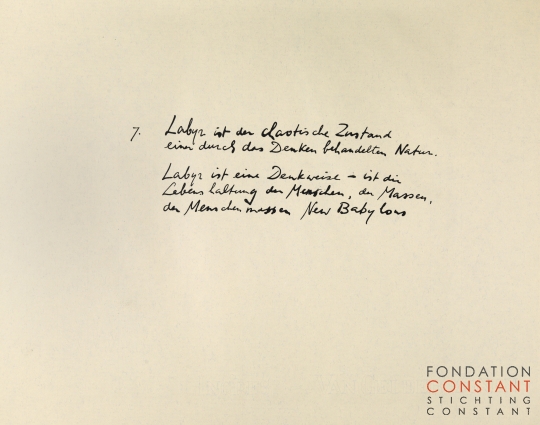 7. Labyr ist der chaotische Zustand
einer durch das Denken behandelten Natur.
Labyr ist eine Denkweise – ist die
Lebenshaltung der Menschen, der Massen,
der Menschenmassen New Babylons
FONDATION
CONSTANT
STICHTING
CONSTANT